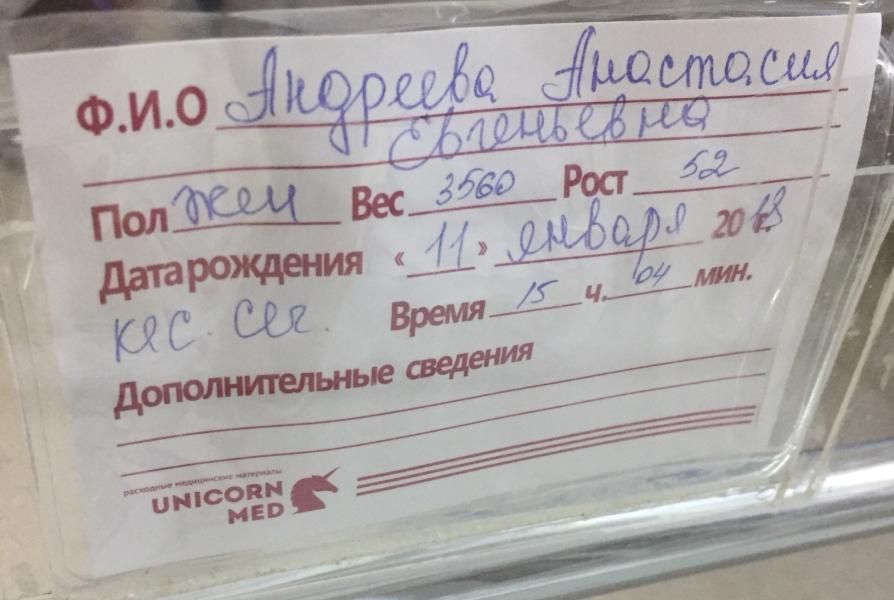 Ф.И.О Андреева Анастасия
Евгеньевна
Пол жен Вес 3560 Рост 52
Дата рождения « 11 » января 2018
кес. сеч. Время 15 ч. 04 мин.
Дополнительные сведения
расходные медицинские материалы
UNICORN
MED